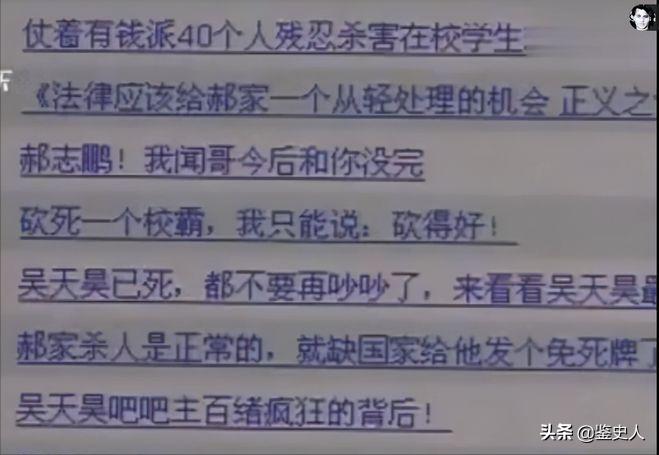 仗着有钱派40个人残忍杀害在校学生
《法律应该给郝家一个从轻处理的机会 正义之
郝志鹏！我闻哥今后和你没完
砍死一个校霸，我只能说：砍得好！
吴天昊已死，都不要再吵吵了，来看看吴天昊最
郝家杀人是正常的，就缺国家给他发个免死牌了
吴天昊吧吧主百绪疯狂的背后！
头条 @鉴史人